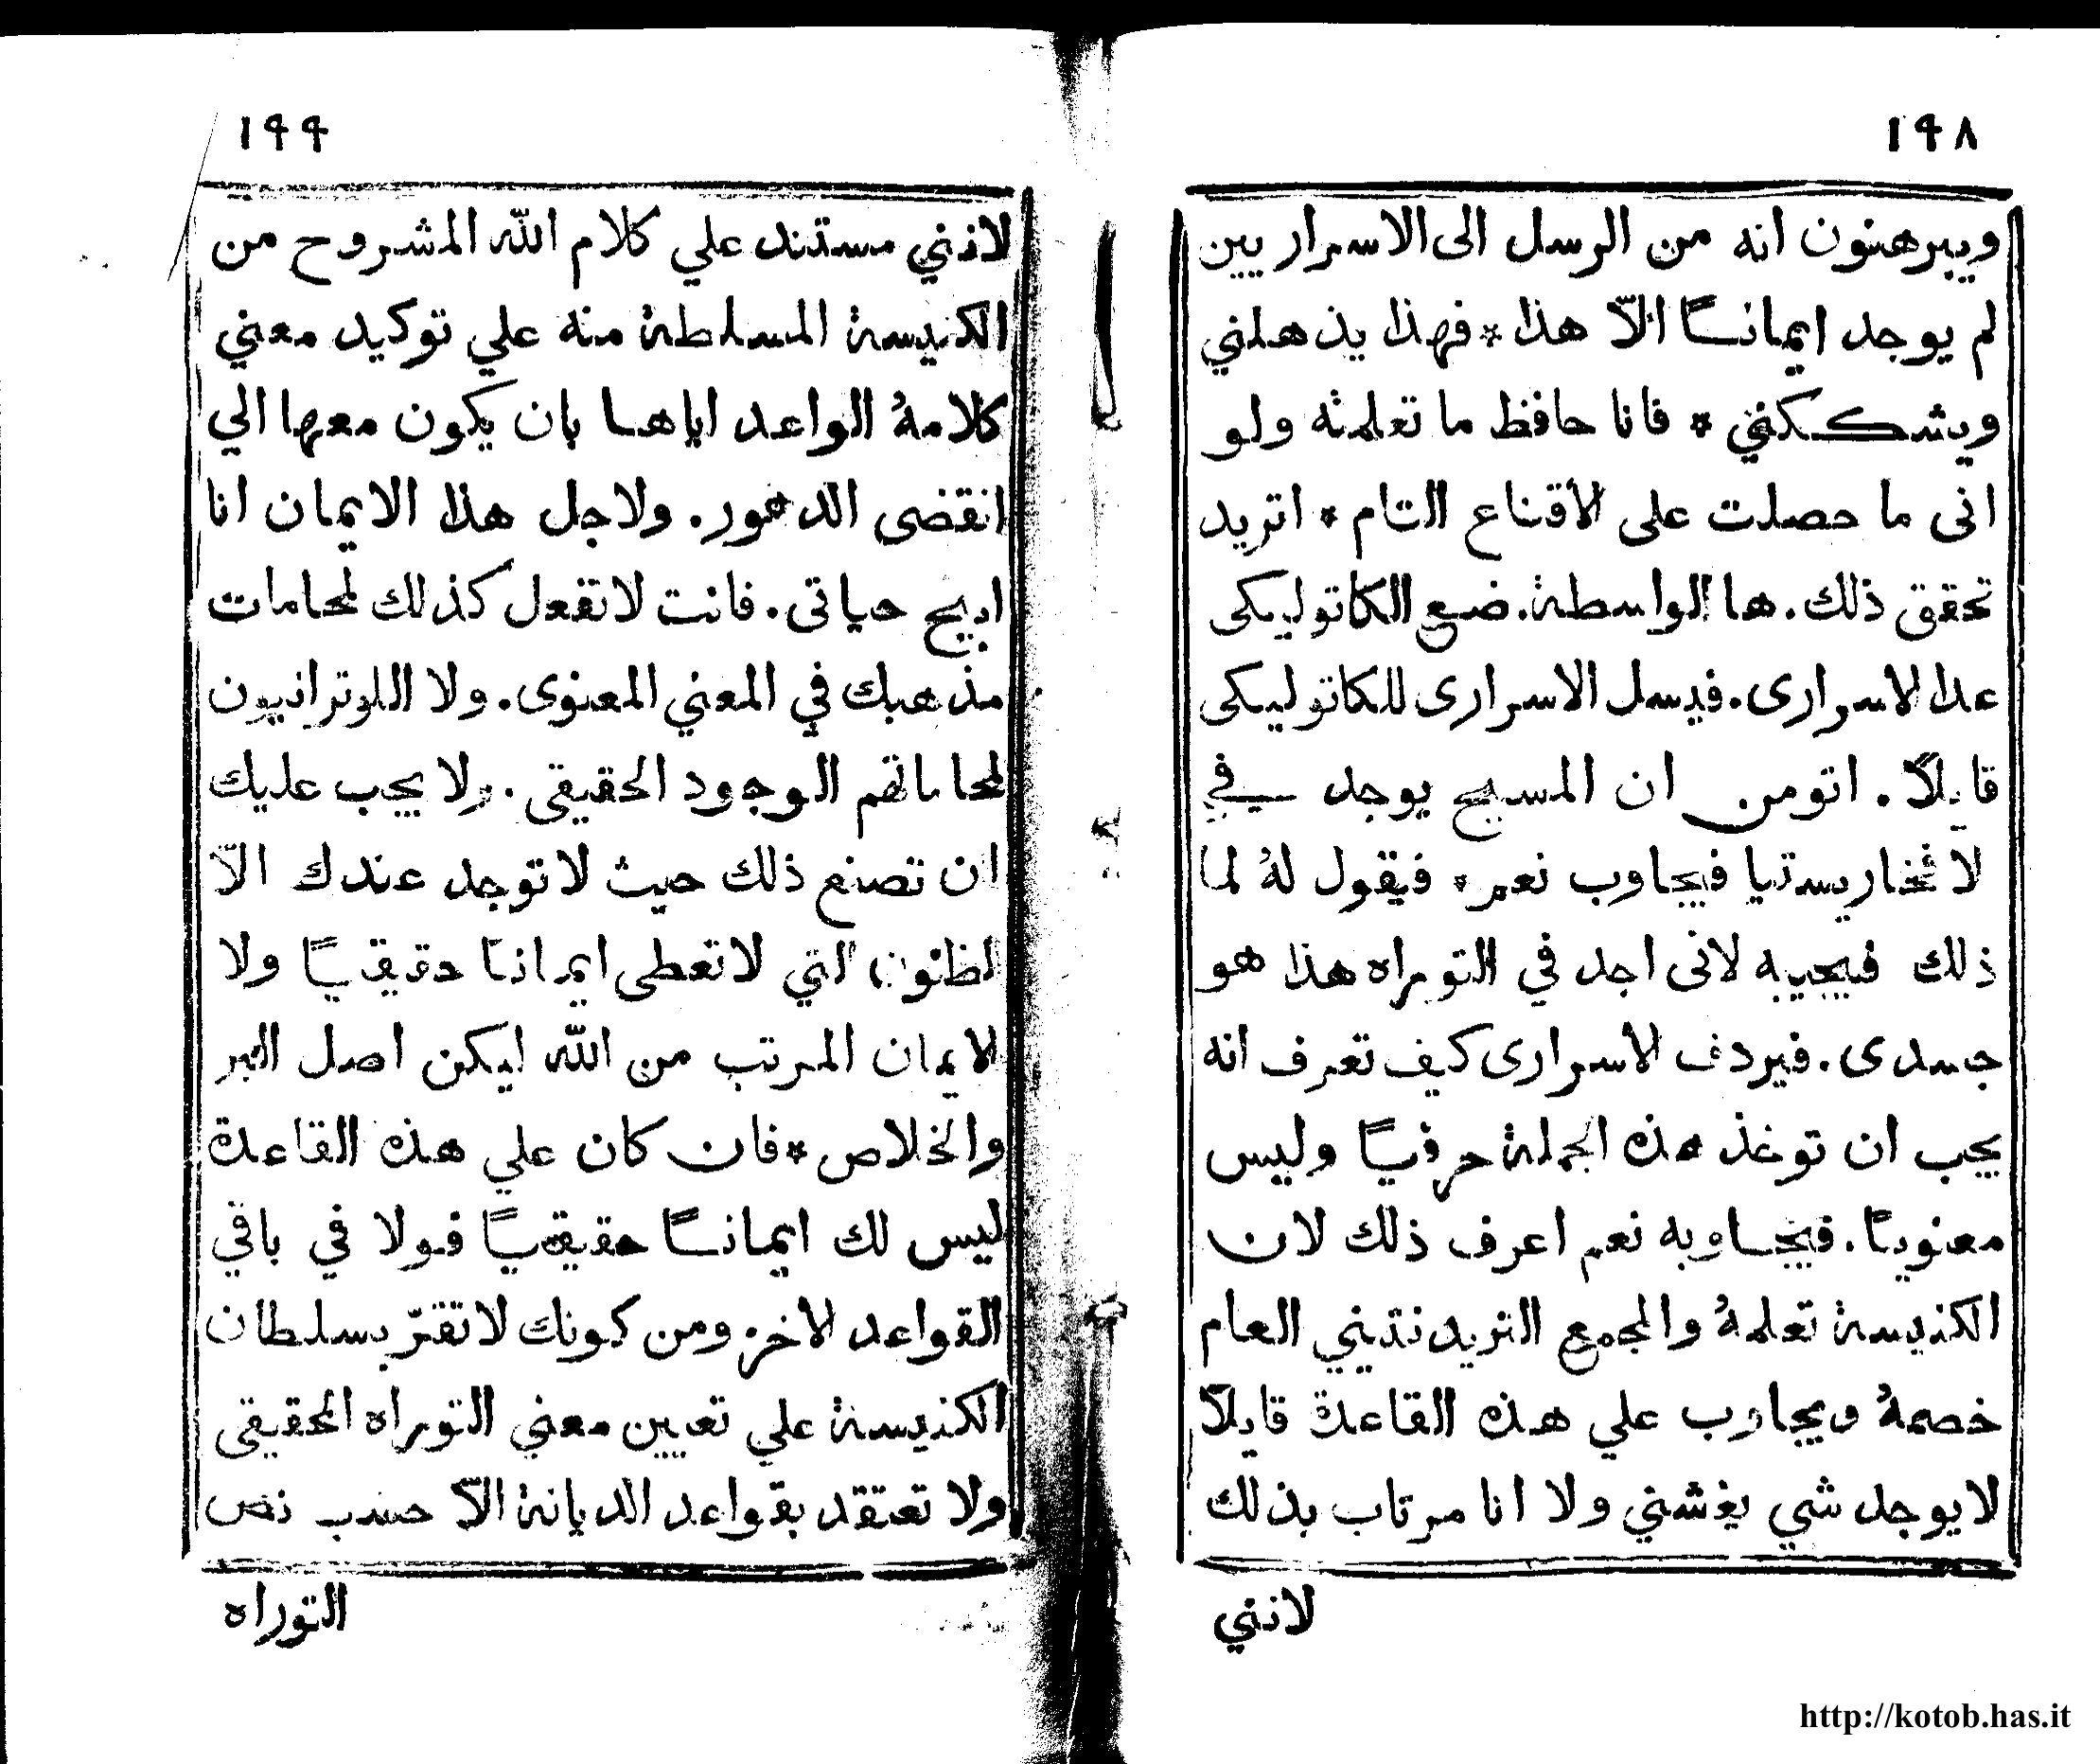 ١٩٨
ويبرهنون انه من الرسل الى الاسراريين
لم يوجد ايمانًا الّا هذا * فهذا يذهلني
ويشككني * فانا حافظ ما تعلمته ولو
انى ما حصلت على الاقناع التام * اتريد
تحقق ذلك. ها الواسطة. ضع الكاتوليكى
عدا الاسرارى. فيسل الاسرارى للكاتوليكى
قايلًا. اتومن ان المسيح يوجد في
لافخاريستيا فيجاوب نعم * فيقول لهُ لما
ذلك فيجيبه لانى اجد في التوراه هذا هو
جسدى. فيردف الاسرارى كيف تعرف انه
يجب ان توخذ هذه الجملة حرفيًا وليس
معنويًا. فيجاوبه نعم اعرف ذلك لان
الكنيسة تعلمهُ والمجمع التريدنتيني العام
خصمهُ ويجاوب علي هذه القاعدة قايلًا
لايوجد شي يغشني ولا انا مرتاب بذلك
لانني
١٩٩
لانني مستند علي كلام الله المشروح من
الكنيسة المسلطة منه علي توكيد معني
كلامهُ الواعد اياها بان يكون معها الي
انقضى الدهور. ولاجل هذا الايمان انا
ابيح حياتى. فانت لاتفعل كذلك لمحامات
مذهبك في المعني المعنوى. ولا اللوترانيون
لمحاماتهم الوجود الحقيقى. ولا يجب عليك
ان تصنع ذلك حيث لاتوجد عندك الّا
لظنون التي لاتعطى ايمانًا حقيقيًا ولا
الايمان المرتب من الله ليكن اصل البر
والخلاص * فان كان علي هذه القاعدة
ليس لك ايمانًا حقيقيًا فولا في باقي
القواعد الاخر. ومن كونك لاتقرّ بسلطان
الكنيسة علي تعيين معني التوراه الحقيقى
ولا تعتقد بقواعد الديانة الّا حسب نص
التوراه
http://kotob.has.it